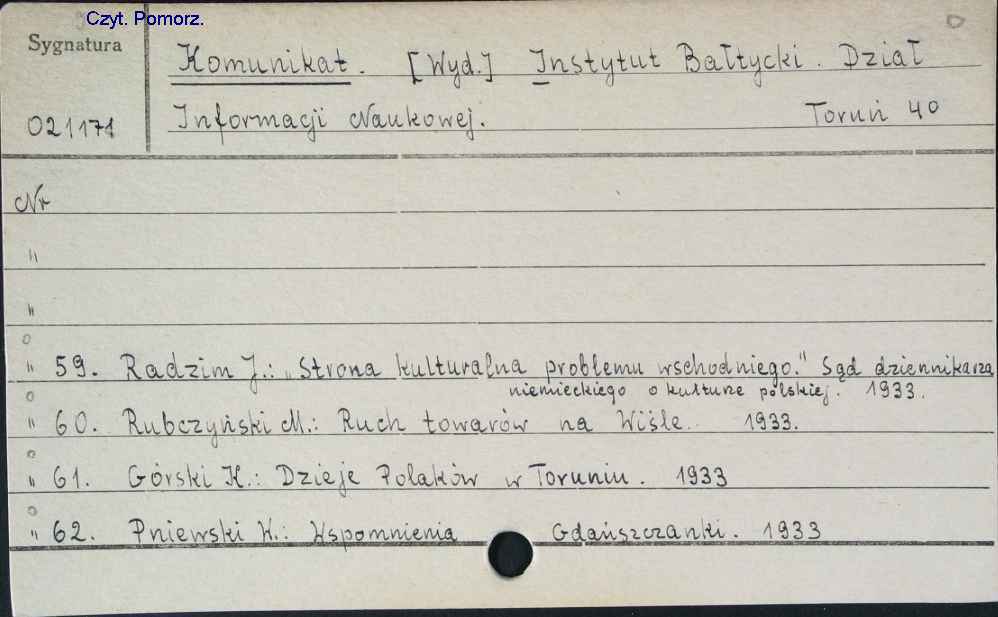 Czyt. Pomorz.
Sygnatura
Komunikat. [Wyd.] Instytut Bałtycki. Dział
021171
Informacji Naukowej. Toruń 40
Nr
"
"
" 59. Radzim J.: „Strona kulturalna problemu wschodniego." Sąd dziennikarza
niemieckiego o kulturze polskiej. 1933.
" 60. Rubczyński M.: Ruch towarów na Wiśle. 1933.
" 61. Górski K.: Dzieje Polaków w Toruniu. 1933
" 62. Pniewski W.: Wspomnienia Gdańszczanki. 1933